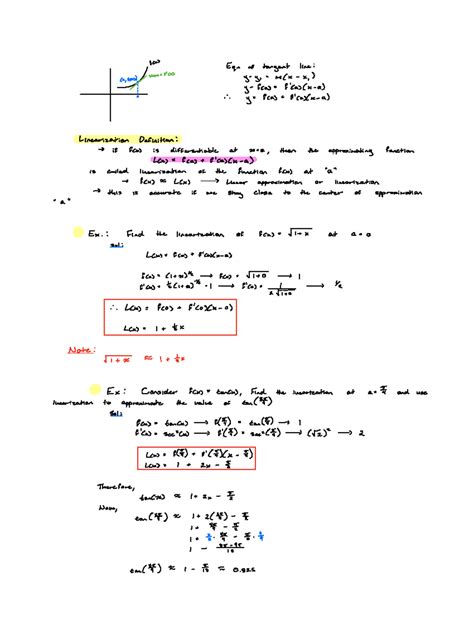 f(x)
(a, f(a))
slope = f'(a)
Eqn of tangent line:
y - y₁ = m(x - x₁)
y - f(a) = f'(a)(x-a)
∴ y = f(a) + f'(a)(x-a)
Linearization Definition:
→ if f(x) is differentiable at x=a, then the approximating function
L(x) = f(a) + f'(a)(x-a)
is called linearization of the function f(x) at "a"
→ f(x) ≈ L(x) → linear approximation or linearization
→ this is accurate if we stay close to the center of approximation
"a"
Ex.: Find the linearization of f(x) = √(1+x) at a = 0
Sol:
L(x) = f(a) + f'(a)(x-a)
f(x) = (1+x)^½ → f(0) = √(1+0) → 1
f'(x) = ½(1+x)^-½ · 1 → f'(0) = 1/(2√(1+0)) → ½
∴ L(x) = f(0) + f'(0)(x-0)
L(x) = 1 + ½x
Note:
√(1+x) ≈ 1 + ½x
Ex: Consider f(x) = tan(x), Find the linearization at a = π/4 and use
linearization to approximate the value of tan(2π/9)
Sol:
f(x) = tan(x) → f(π/4) = tan(π/4) → 1
f'(x) = sec²(x) → f'(π/4) = sec²(π/4) → (√2)² → 2
L(x) = f(π/4) + f'(π/4)(x - π/4)
L(x) = 1 + 2x - π/2
Therefore,
tan(x) ≈ 1 + 2x - π/2
Now,
tan(2π/9) ≈ 1 + 2(2π/9) - π/2
1 + 4π/9 - π/2
1 + 2/2 · 4π/9 - π/2 · 9/9
1 - 9π-8π/18
tan(2π/9) ≈ 1 - π/18 ≈ 0.825